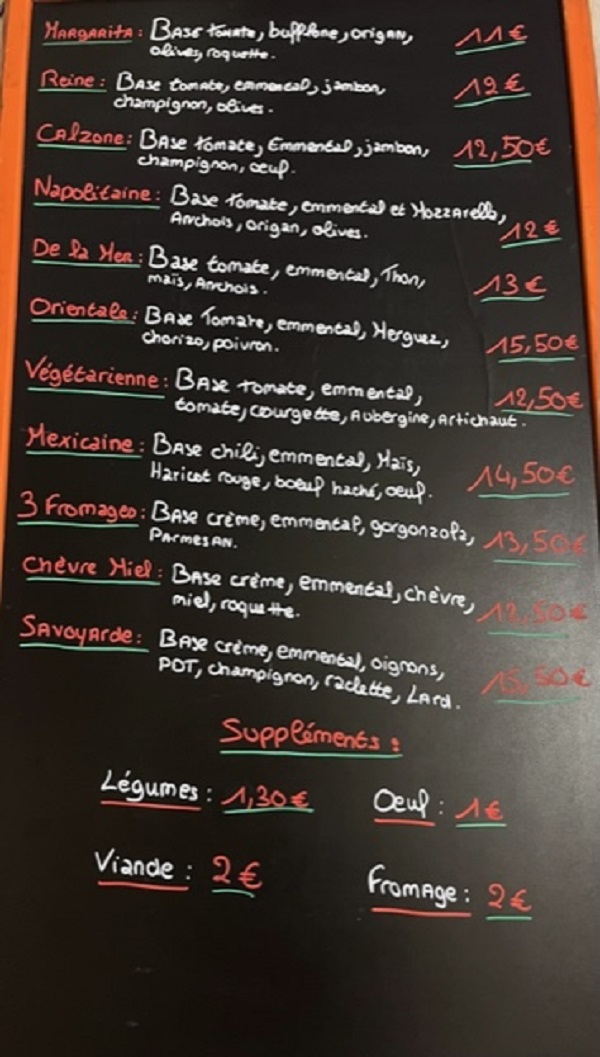 Margarita : Base tomate, bufflone, origan, 11€
olives, roquette.
Reine : Base tomate, emmental, jambon, 12€
champignon, olives.
Calzone : Base tomate, Emmental, jambon, 12,50€
champignon, oeuf.
Napolitaine : Base tomate, emmental et Mozzarella,
Anchois, origan, olives. 12€
De la Mer : Base tomate, emmental, Thon, 13€
maïs, Anchois.
Orientale : Base Tomate, emmental, Merguez, 15,50€
chorizo, poivron.
Végétarienne : Base tomate, emmental, 12,50€
tomate, courgette, Aubergine, Artichaut.
Mexicaine : Base chili, emmental, Maïs, 14,50€
Haricot rouge, boeuf haché, oeuf.
3 Fromages : Base crème, emmental, gorgonzola, 13,50€
Parmesan.
Chèvre Miel : Base crème, emmental, chèvre, 12,50€
miel, roquette.
Savoyarde : Base crème, emmental, oignons, 15,50€
PDT, champignon, raclette, Lard.
Suppléments :
Légumes : 1,30€ Oeuf : 1€
Viande : 2€ Fromage : 2€